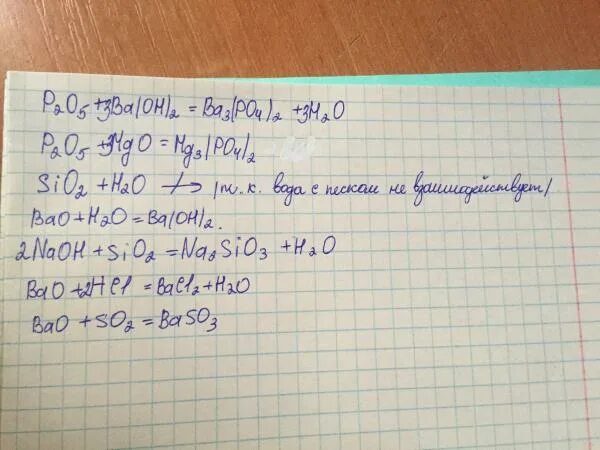 P₂O₅ + 3Ba(OH)₂ = Ba₃(PO₄)₂ + 3H₂O
P₂O₅ + 3MgO = Mg₃(PO₄)₂
SiO₂ + H₂O ↛ (т.к. вода с песком не взаимодействует)
BaO + H₂O = Ba(OH)₂.
2NaOH + SiO₂ = Na₂SiO₃ + H₂O
BaO + 2HCl = BaCl₂ + H₂O
BaO + SO₂ = BaSO₃